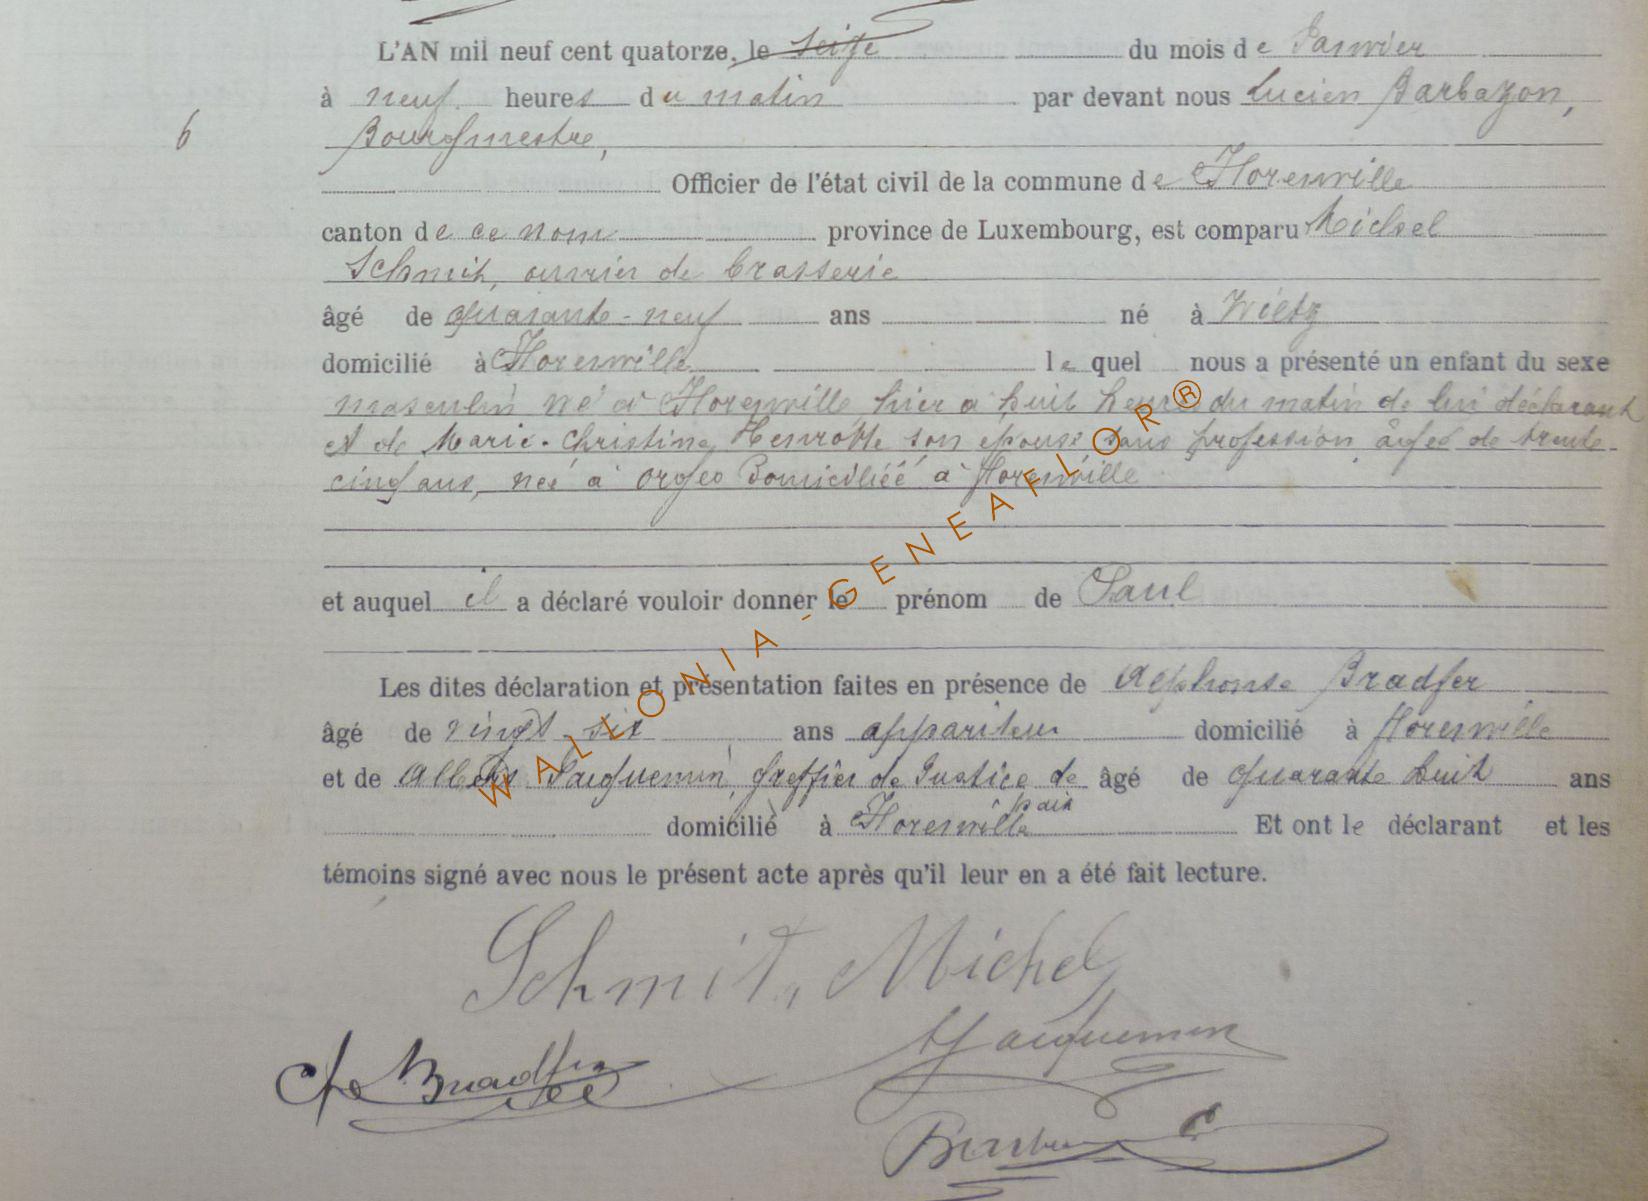 L'AN mil neuf cent quatorze, le seize du mois de Janvier
à neuf heures du matin par devant nous Lucien Barbazon,
6
Bourgmestre,
Officier de l'état civil de la commune de Florenville
canton de ce nom province de Luxembourg, est comparu Michel
Schmit, ouvrier de brasserie
âgé de quarante-neuf ans né à Wiltz
domicilié à Florenville lequel nous a présenté un enfant du sexe
masculin né à Florenville hier à huit heures du matin de lui déclarant
et de Marie-Christine Henrotte son épouse sans profession âgée de trente-
cinq ans, née à Orgeo Domiciliéé à Florenville
et auquel il a déclaré vouloir donner le prénom de Paul
Les dites déclaration et présentation faites en présence de Alphonse Bradfer
âgé de vingt six ans appariteur domicilié à Florenville
et de Albert Jacquemin, greffier de Justice de âgé de quarante huit ans
paix
domicilié à Florenville Et ont le déclarant et les
témoins signé avec nous le présent acte après qu'il leur en a été fait lecture.
Schmit, Michel
Jacquemin
Bradfer
WALLONIA-GENEAFLOR®